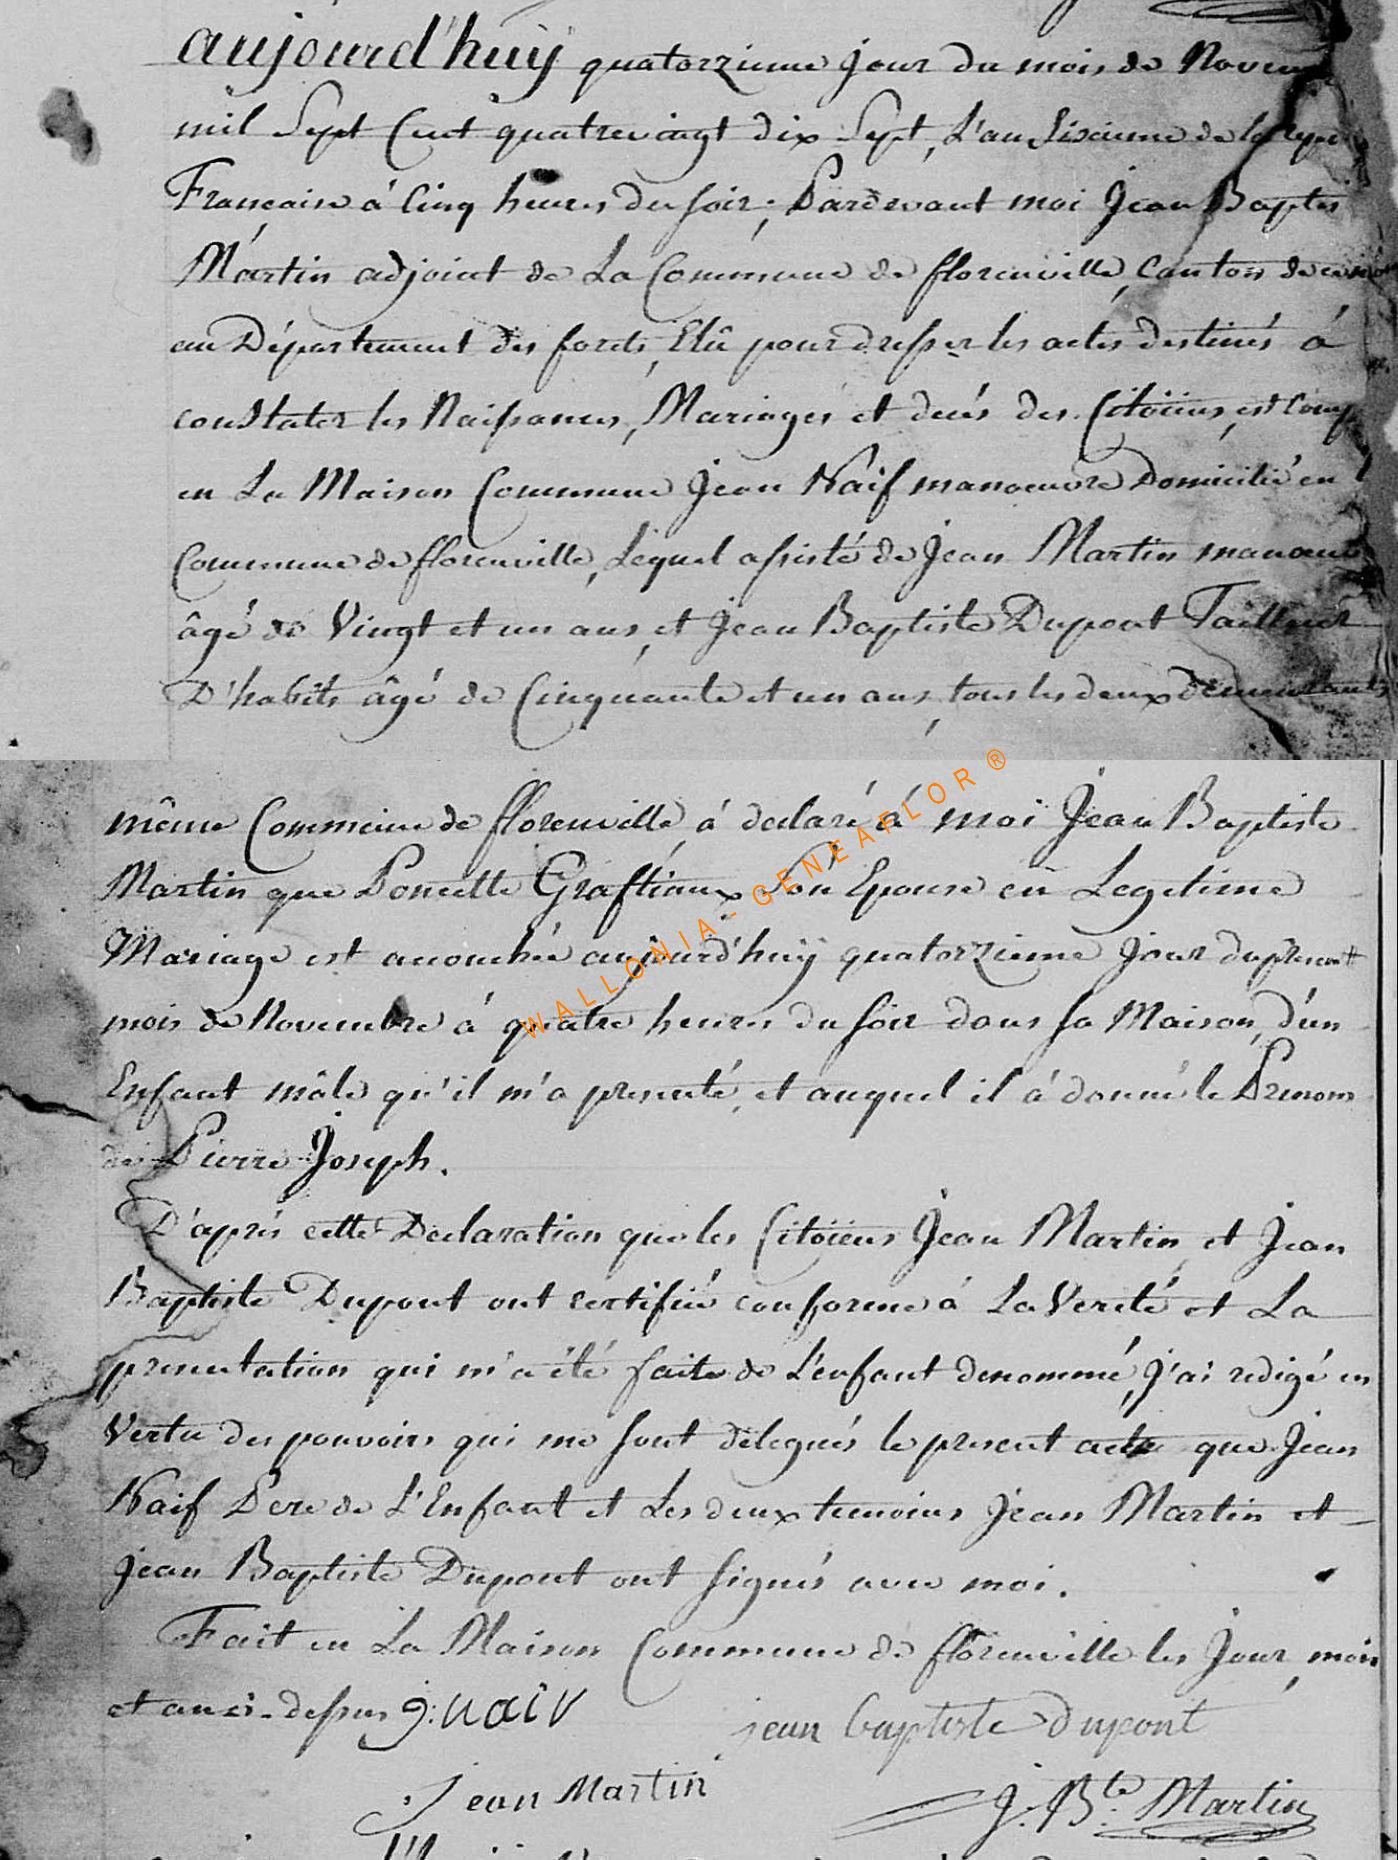 aujourd'huy quatorzieme jour du mois de Novem
mil Sept Cent quatrevingt dix Sept, L'an Sixieme de la
Francaise à Cinq heures du soir, Pardevant moi Jean Baptis
Martin adjoint de La Commune de florenville, Canton de
au Département des forets, Elû pour dresser les actes destinés à
constater les Naissances, Mariages et decés des Citoïens, est Comp
en La Maison Commune Jean Naif manoeuvre Domicilié en
Commune de florenville, Lequel assisté de Jean Martin manoeu
âgé de Vingt et un ans, et Jean Baptiste Dupont Tailleur
D'habits âgé de Cinquante et un ans, tous les deux demeurants
même Commune de florenville, à declaré à moi Jean Baptiste
Martin que Poncette Graftiaux Son Epouse en Legetime
Mariage est accouchée aujourd'huÿ quatorzieme jour du present
mois de Novembre à quatre heures du soir dans sa Maison, d'un
Enfant mâle qu'il m'a presenté, et auquel il à donné le Prenom
de Pierre Joseph.
D'après cette Declaration que les Citoïens Jean Martin et Jean
Baptiste Dupont ont certifié conforme à La Verité et La
presentation qui m'a été faite de L'enfant denommé, J'ai redigé en
Vertu des pouvoirs qui me sont délegués le present acte que Jean
Naif Pere de L'Enfant et Les deux temoins Jean Martin et
Jean Baptiste Dupont ont signés avec moi.
Fait en La Maison Commune de florenville les Jour, mois
et an ci-dessus j: naiv
jean baptiste dupont
Jean Martin
J. B.te Martin
WALLONIA-GENEAFLOR ®